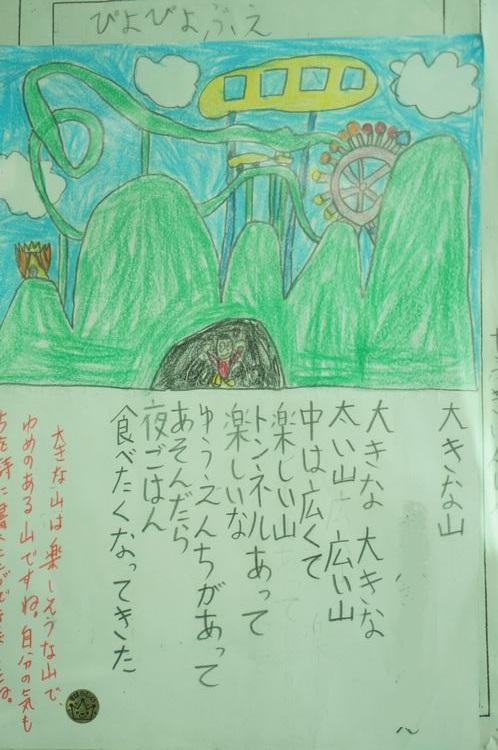 ぴよぴよぶえ
大きな山
大きな　大きな
太い山　広い山
中は広くて
楽しい山
トンネルあって
楽しいな
ゆうえんちがあって
あそんだら
夜ごはん
食べたくなってきた
大きな山は楽しそうな山で、
ゆめのある山ですね。自分の気も
ちを詩に書くことができましたね。